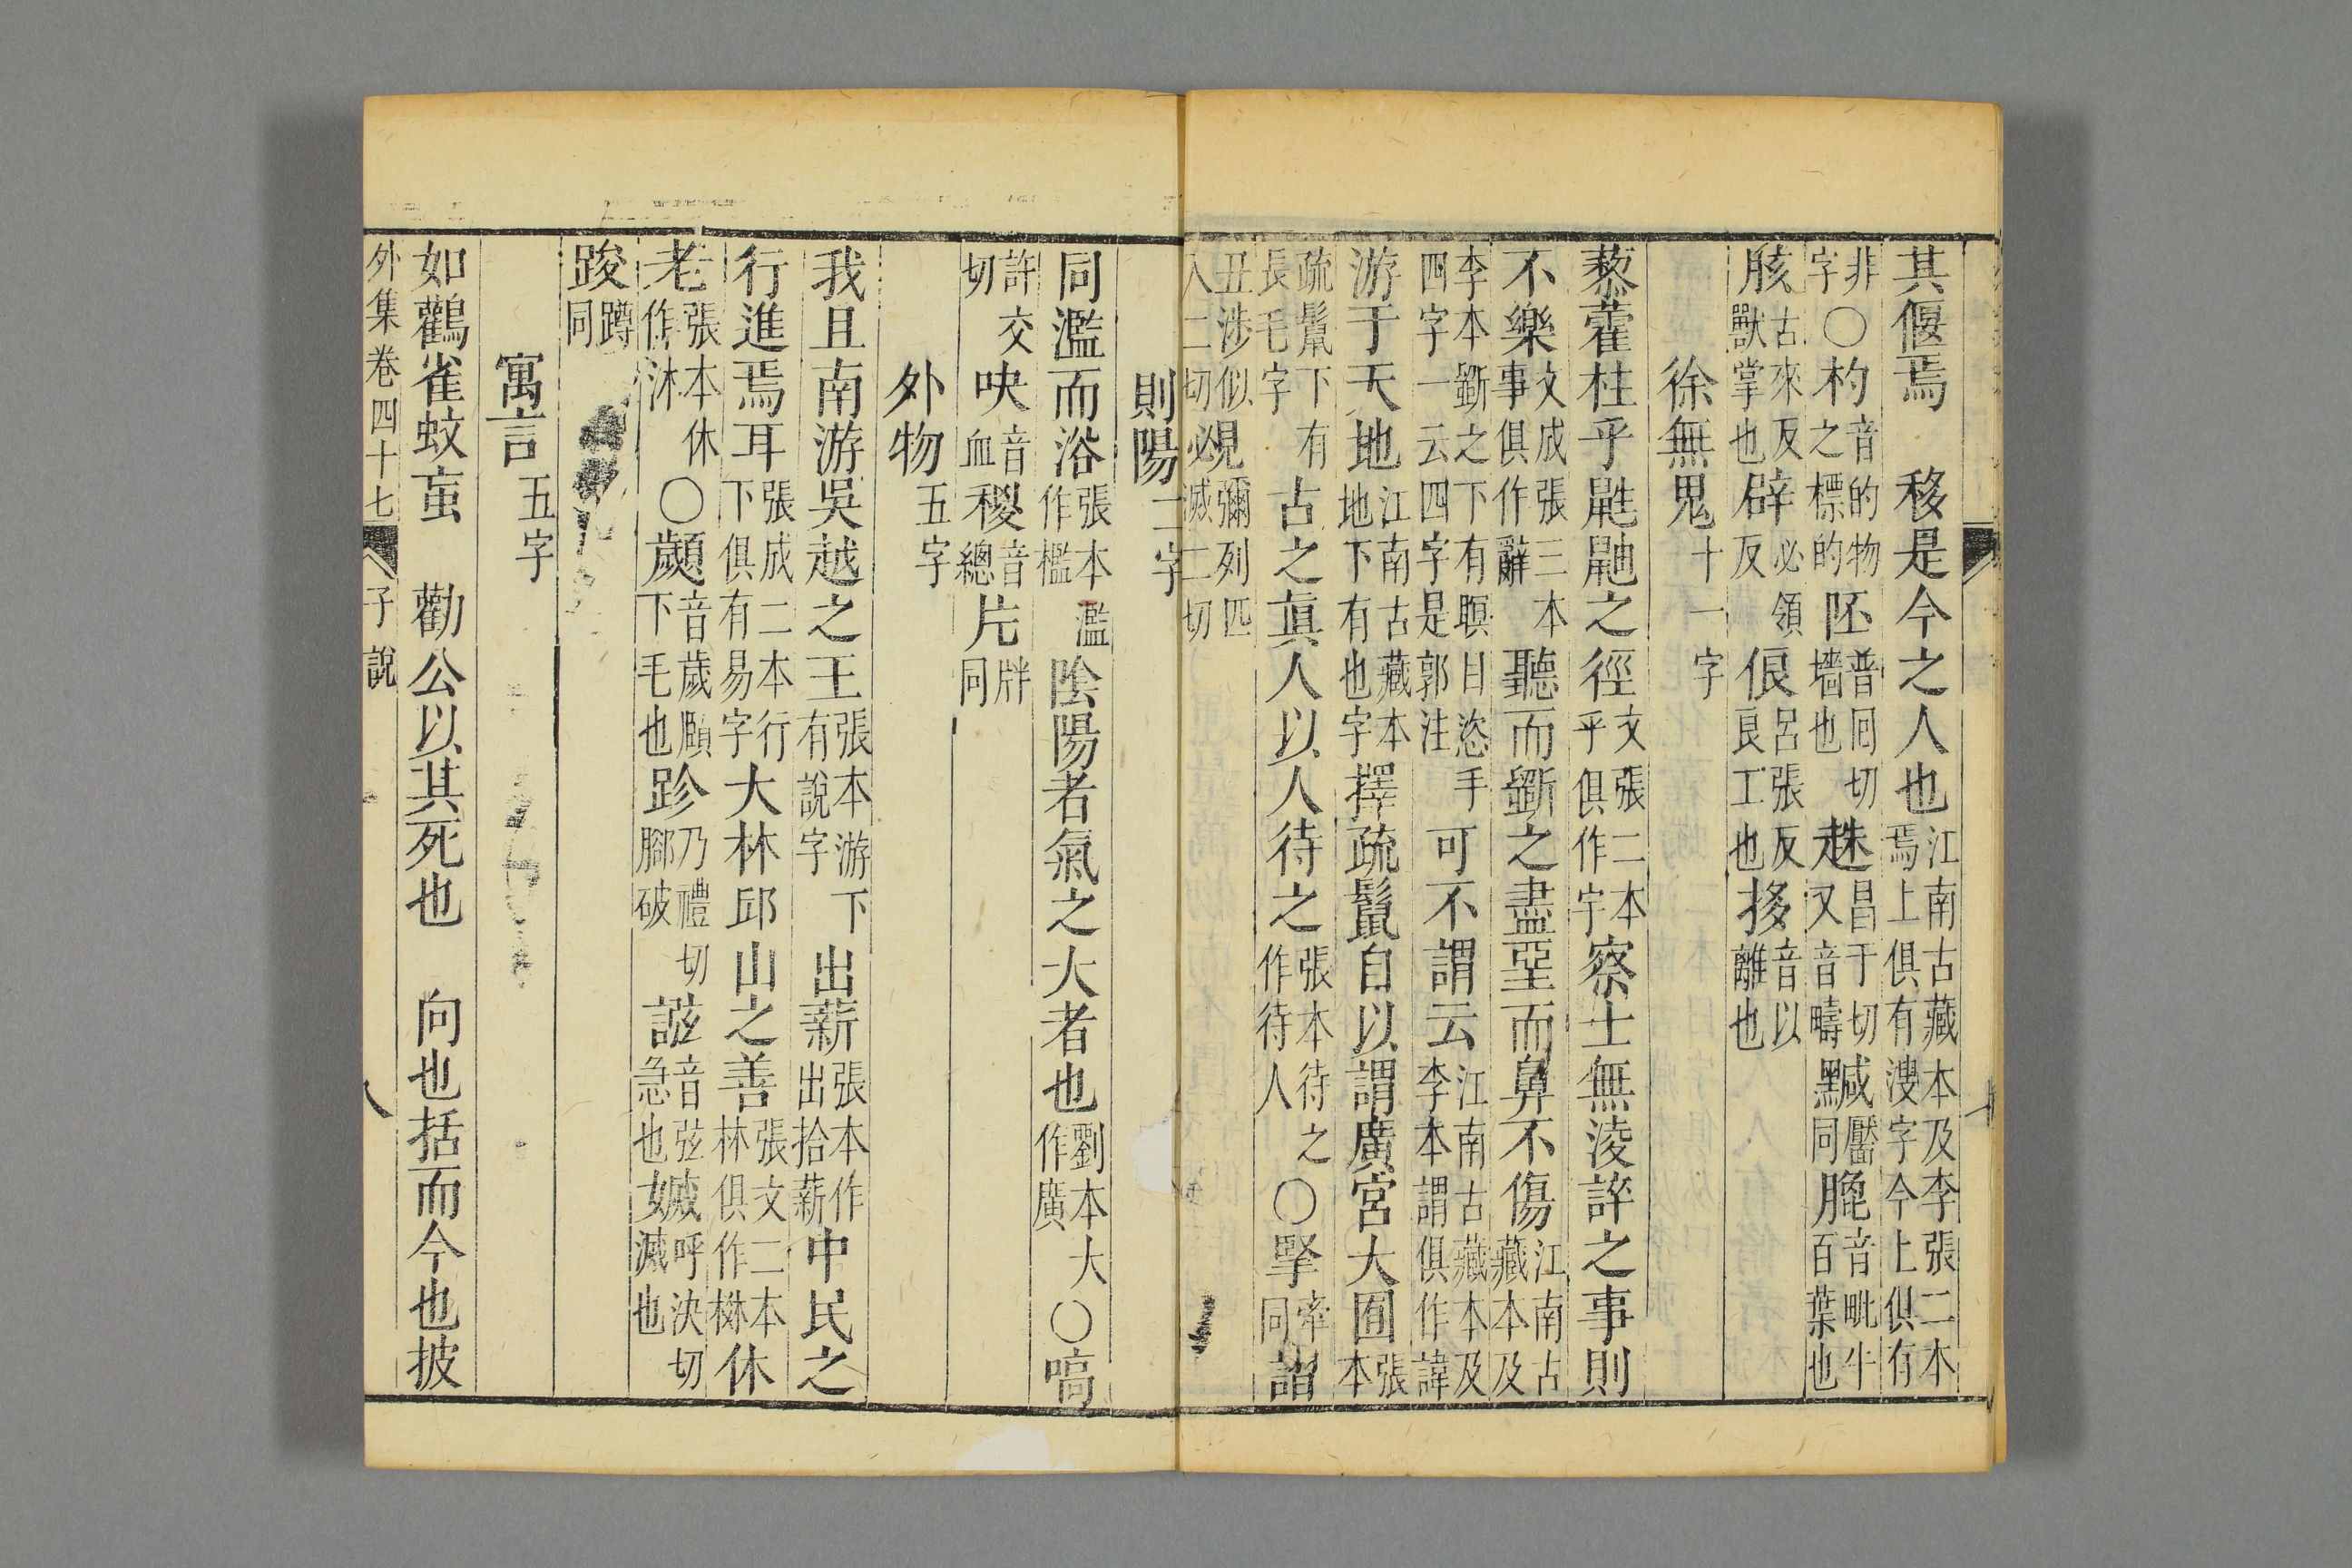 其偃焉　移是今之人也江南古藏本及李張二本焉上俱有溲字今上俱有
非字〇杓音的物之標的阫普囘切墻也趎昌于切又音疇黬黶同膍音毗牛百葉也
胲古來反獸掌也辟必領反俍呂張反良工也拸音以離也
徐無鬼十一字
藜藿柱乎鼪鼬之徑文張二本乎俱作宇察士無淩誶之事則
不樂文成張三本事俱作辭聽而斵之盡堊而鼻不傷江南古藏本及
李本斵之下有瞑目恣手四字一云四字是郭注可不謂云江南古藏本及李本謂俱作諱
游于天地江南古藏本地下有也字擇疏鬣自以謂廣宮大囿張本
疏鬣下有長毛字古之眞人以人待之張本待之作待人〇掔牽同謵
丑涉似入二切覕彌列匹必滅二切
則陽二字
同濫而浴張本濫作檻陰陽者氣之大者也劉本大作廣〇嗃
許交切吷音血稯音總片牉同
外物五字
我且南游吳越之王張本游下有說字出薪張本作出拾薪中民之
行進焉耳張成二本行下俱有易字大林邱山之善張文二本林俱作楙休
老張本休作沐〇顪音歲頤下毛也跈乃禮切腳破誸音弦急也㛍呼決切滅也
踆蹲同
寓言五字
如鸛雀蚊䖟　勸公以其死也　向也括而今也披
外集卷四十七　子說　八